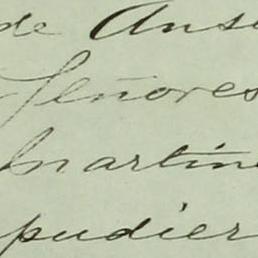 de Anso
Señores
Martine
pudier